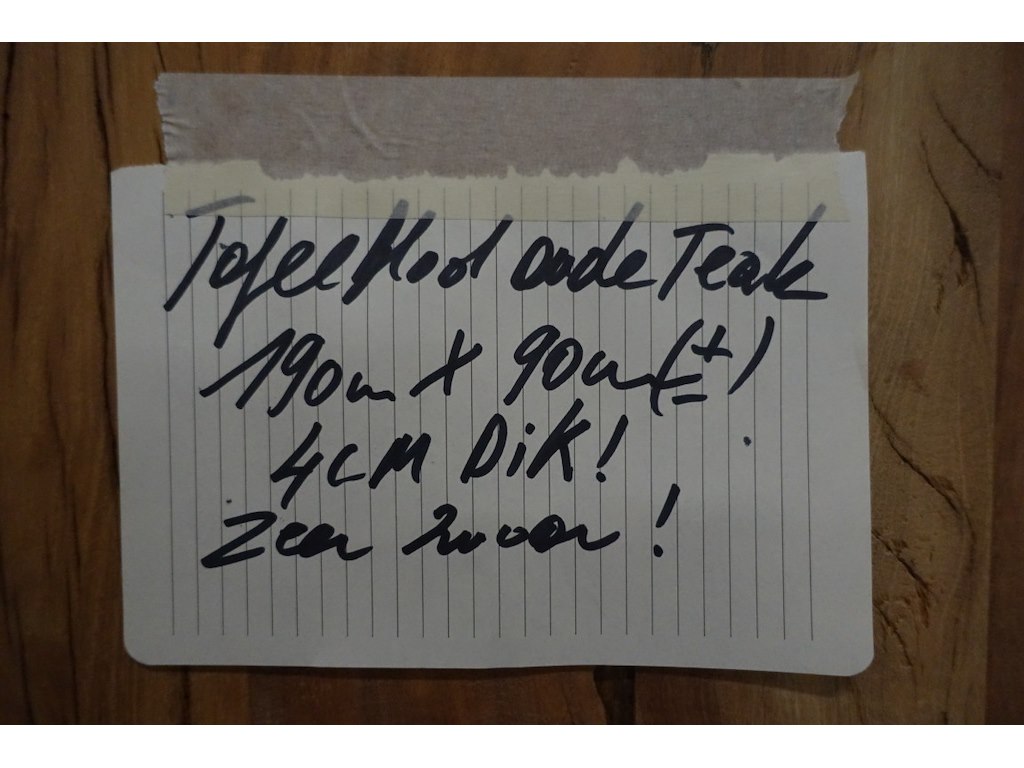 Tafelblad oude Teak
190cm X 90cm (±)
4CM DiK!
Zeer zwaar!